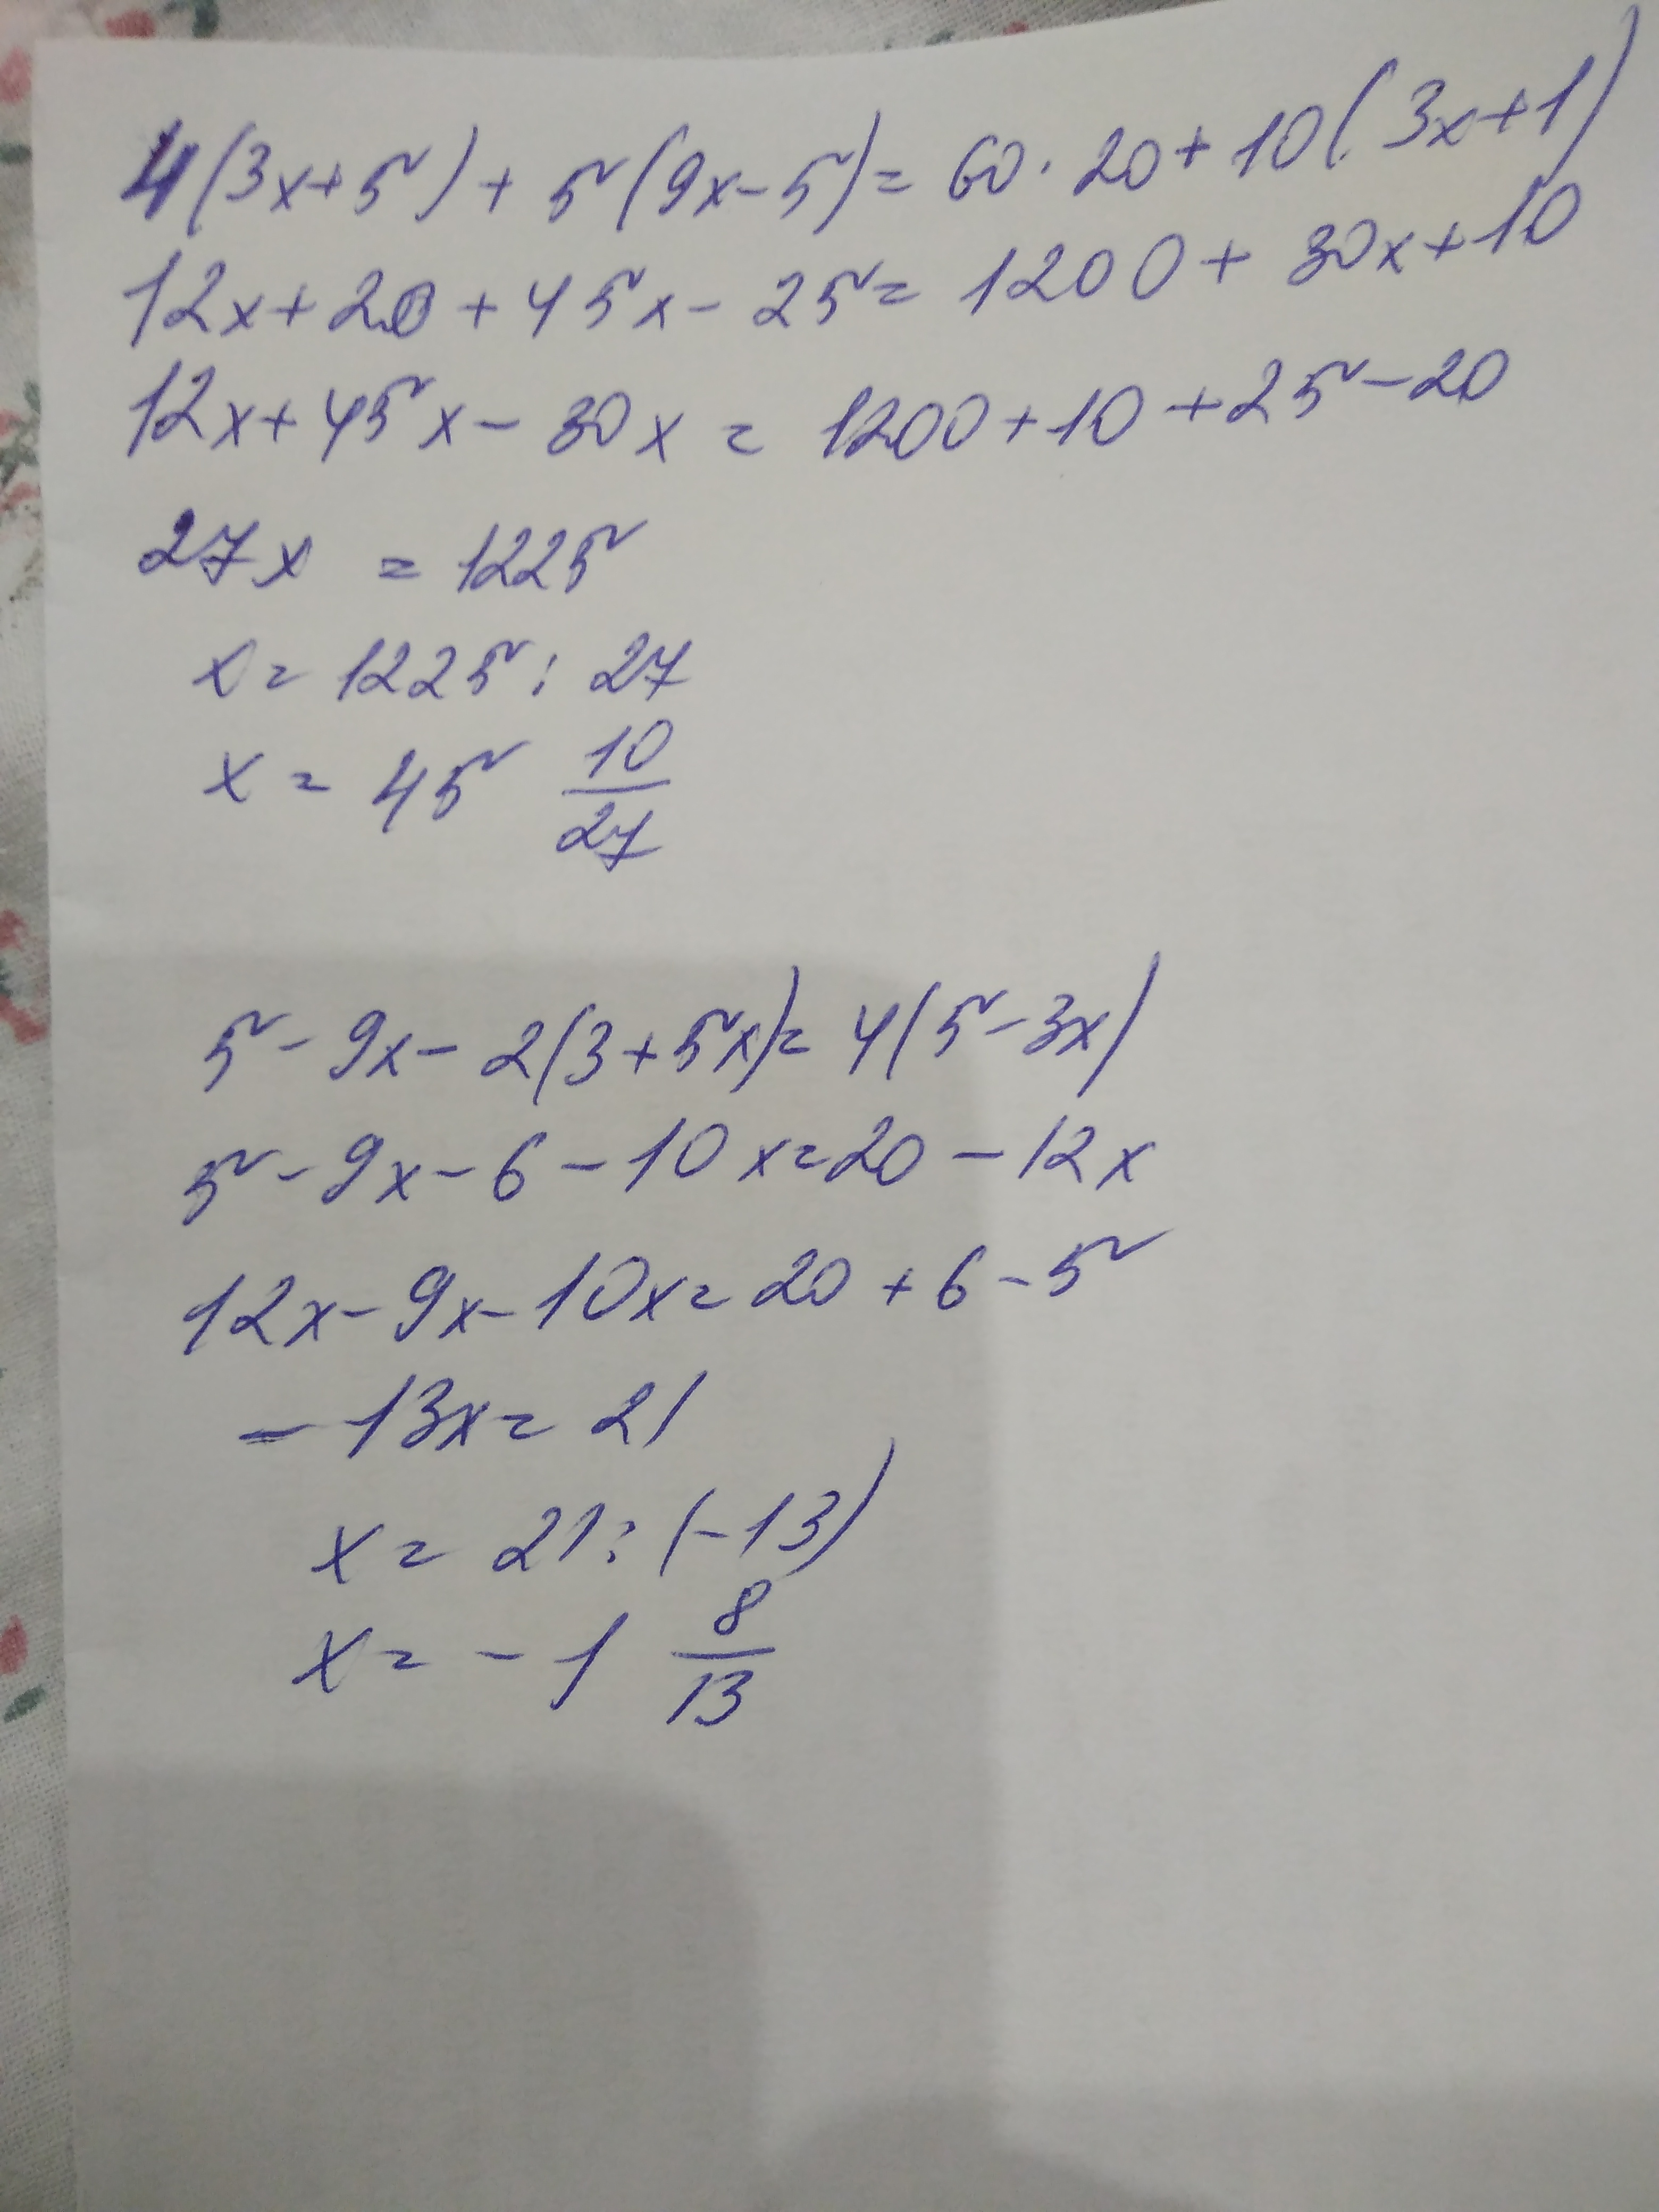 4(3x+5)+5(9x-5)=60·20+10(3x+1)
12x+20+45x-25=1200+30x+10
12x+45x-30x=1200+10+25-20
27x=1225
x=1225:27
x=45 10/27
5-9x-2(3+5x)=4(5-3x)
5-9x-6-10x=20-12x
12x-9x-10x=20+6-5
-13x=21
x=21:(-13)
x=-1 8/13